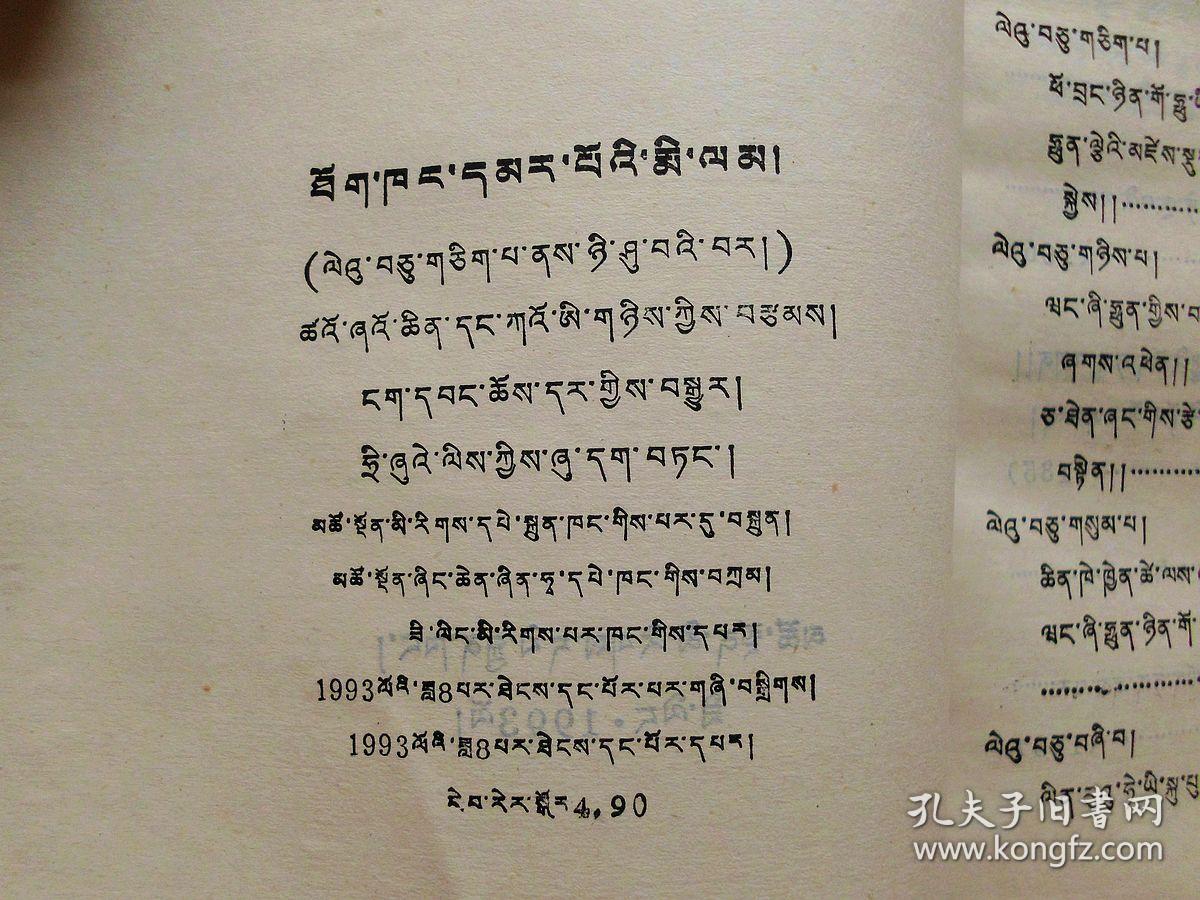 ཐོག་ཁང་དམར་པོའི་རྨི་ལམ།
(ལེའུ་བཅུ་གཅིག་པ་ནས་ཉི་ཤུ་བའི་བར།)
ཚའོ་ཞའོ་ཆིན་དང་ཀའོ་ཨི་གཉིས་ཀྱིས་བརྩམས།
ངག་དབང་ཆོས་དར་གྱིས་བསྒྱུར།
ཧྲི་ཞུའེ་ལིས་ཀྱིས་ཞུ་དག་བཏང་།
མཚོ་སྔོན་མི་རིགས་དཔེ་སྐྲུན་ཁང་གིས་པར་དུ་བསྐྲུན།
མཚོ་སྔོན་ཞིང་ཆེན་ཞིན་ཧྭ་དཔེ་ཁང་གིས་བཀྲམ།
ཟི་ལིང་མི་རིགས་པར་ཁང་གིས་དཔར།
1993ལོའི་ཟླ8པར་ཐེངས་དང་པོར་པར་གཞི་བསྒྲིགས།
1993ལོའི་ཟླ8པར་ཐེངས་དང་པོར་དཔར།
དེབ་རེར་སྒོར4.90
ལེའུ་བཅུ་གཅིག་པ།
ཕོ་བྲང་ཉིན་གོ་ཧྥུ
ཧྥུན་ལྕེའི་མཛེས་སྡུ
སྐྱེས།།············
ལེའུ་བཅུ་གཉིས་པ།
ཝང་ཞི་ཧྥུན་གྱིས་བ
ཞགས་འཕེན།།
ཅ་ཐེན་ཞང་གིས་རྩེ
བསྟེན།།···········
ལེའུ་བཅུ་གསུམ་པ།
ཆིན་ཁེ་ཁྱེན་ཚེ་ལས་
ཝང་ཞི་ཧྥུན་ཉིན་གོ་
ལེའུ་བཅུ་བཞི་བ།
ལིན་རུའུ་ཧེ་ཡི་སྐུ་པུ
孔夫子旧書网
www.kongfz.com